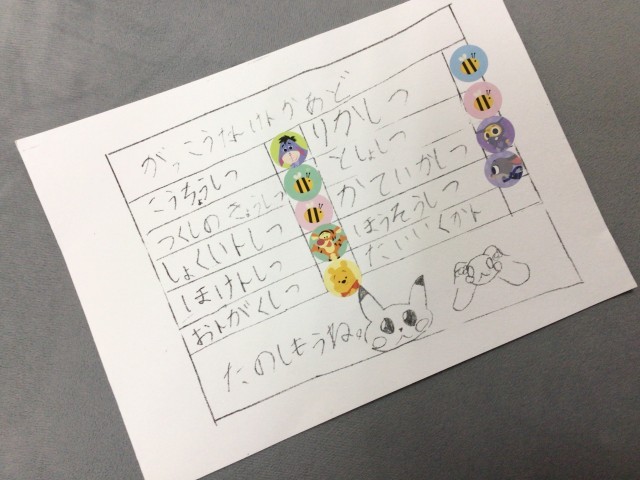 がっこうなけよかあど
こうちょうしつ
つくしのきょうしつ
しょくいトしつ
ほけトしつ
おトがくしつ
りかしつ
としょしつ
かていかしつ
ほうそうしつ
たいいくかト
たのしもうね。